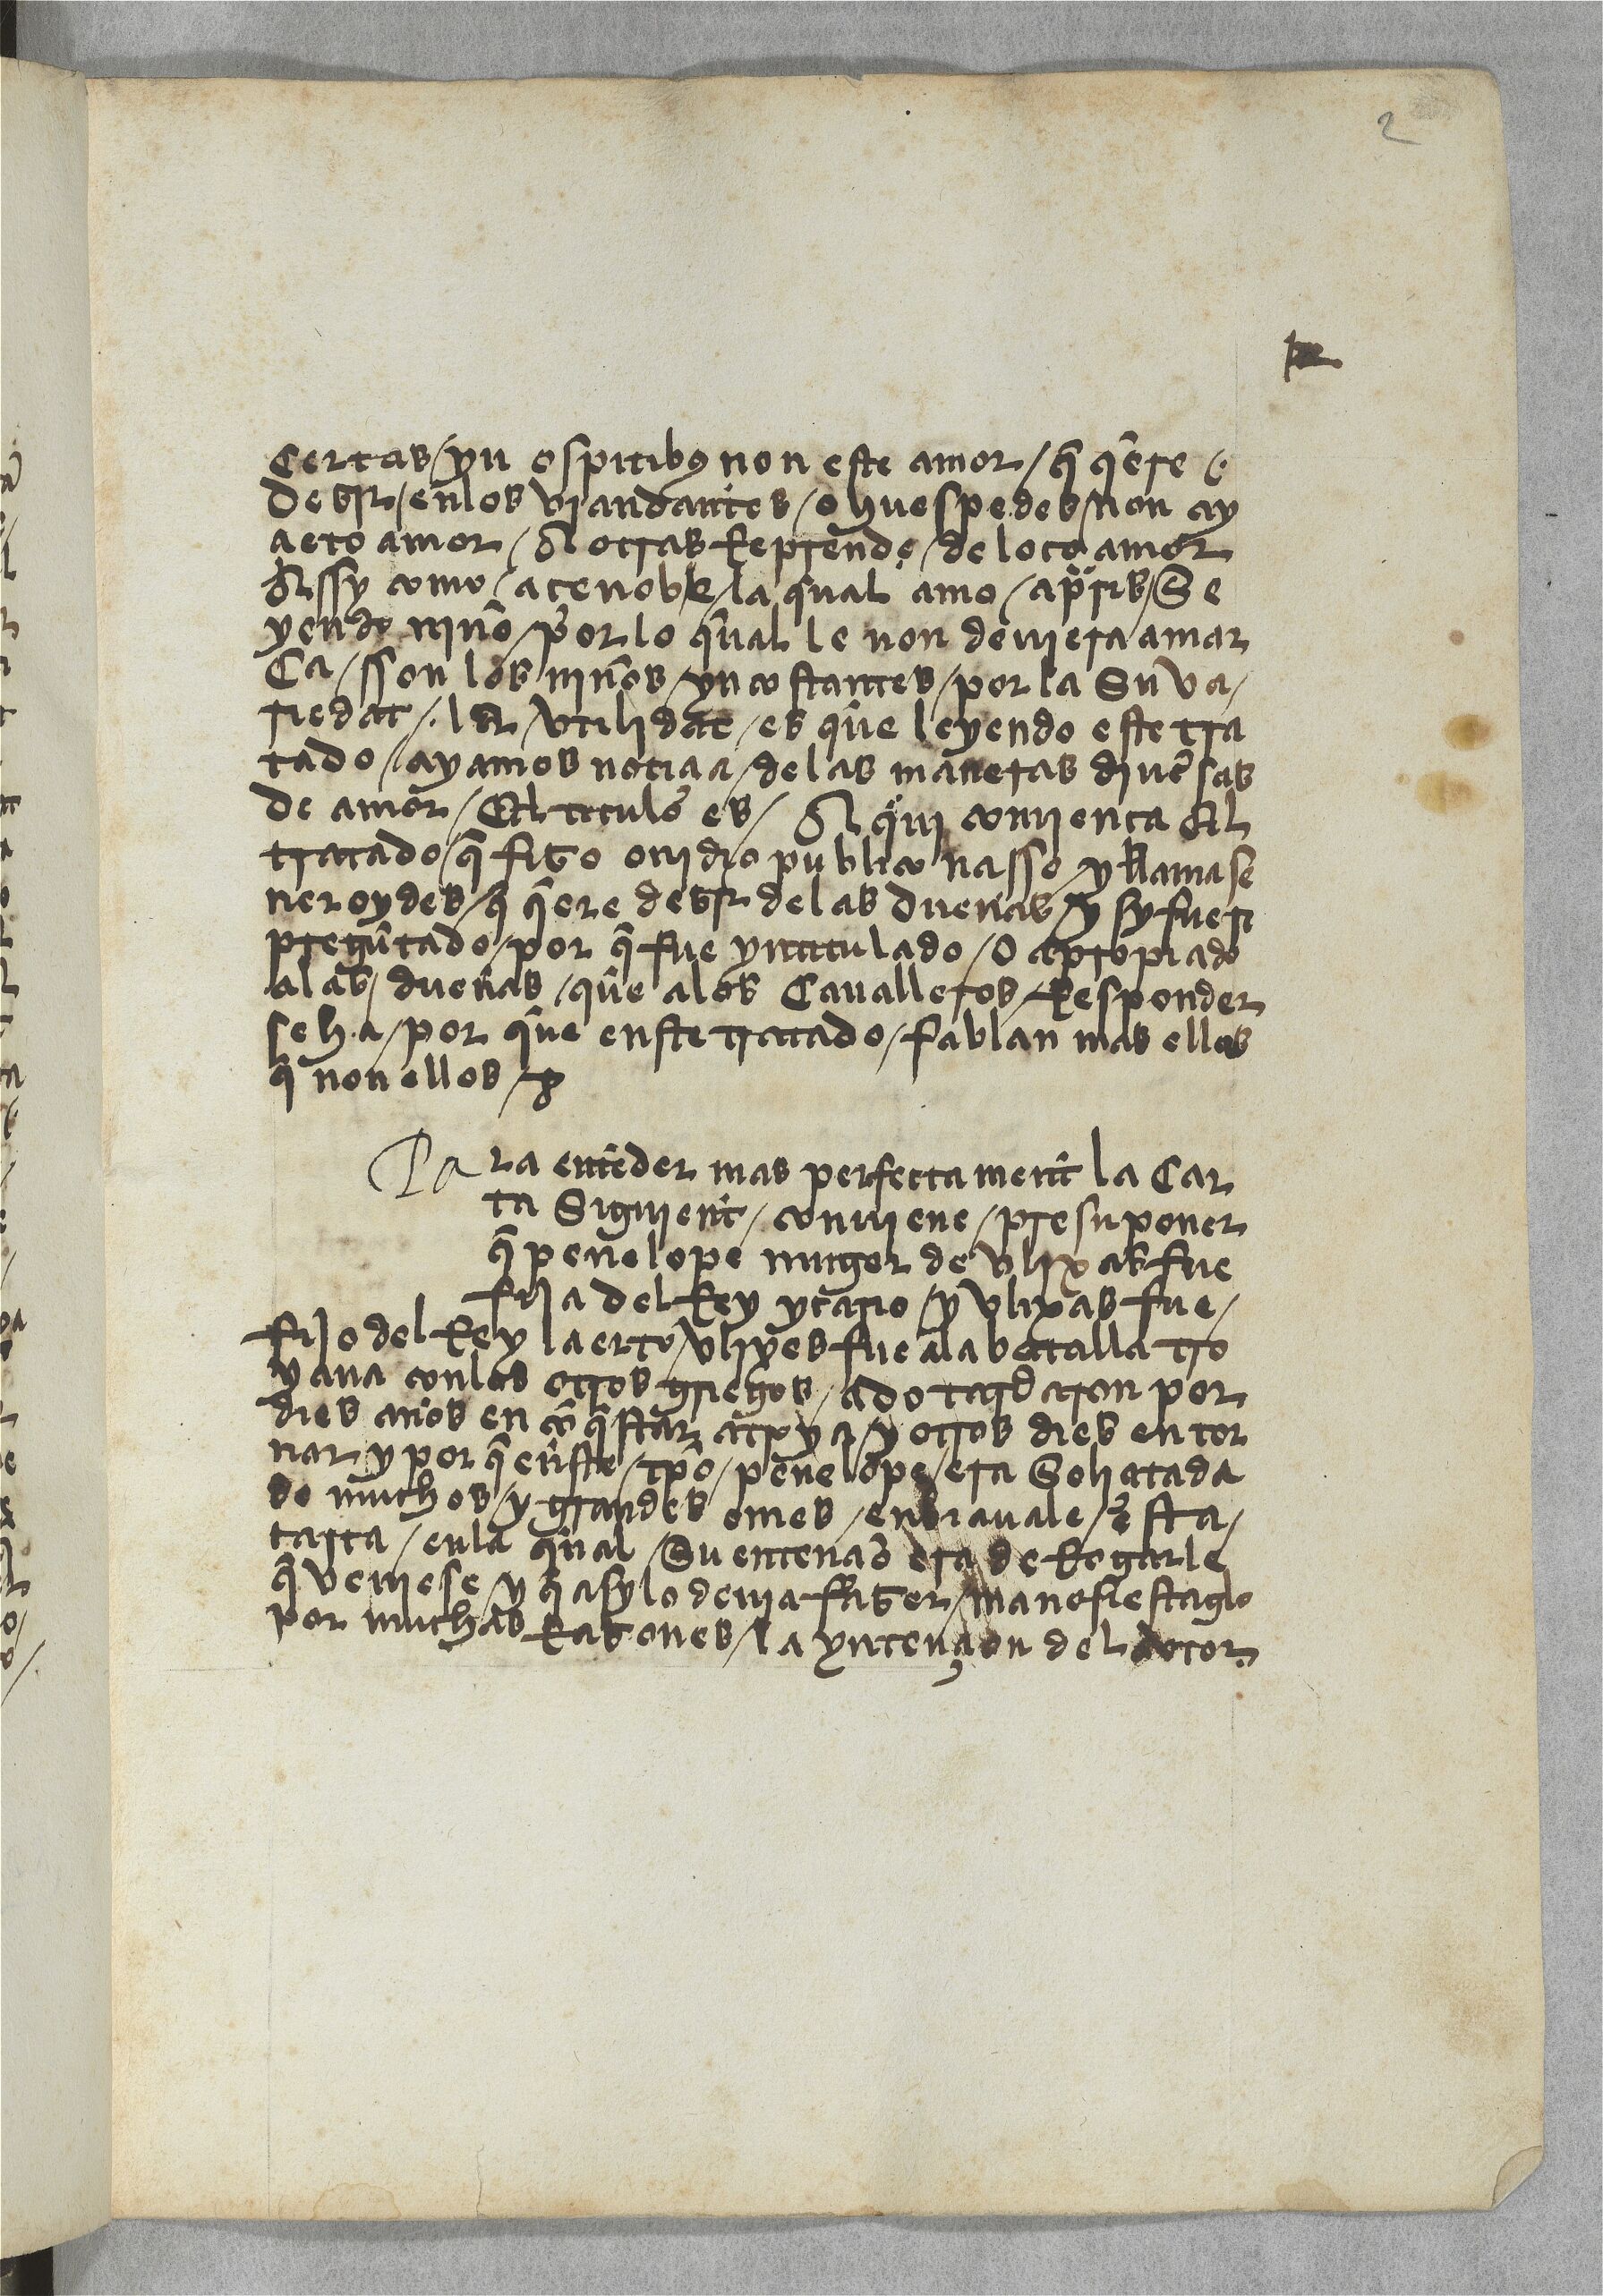 2
Certas / yn ospitibꝰ non este amor / q̄ q̄ere /.
desir / en los viandantes / o huespedes / non ay
acto amor / A otras Reprende / de loco amor
Assy como / a cenobe / la qual amo / a paris / Se
yendo niño / por lo qual le non deviera amar
Ca / sson los niños / yncostantes / por la Su va /
riedat /. lA / vtilidat / es que leyendo este tra
tado / ayamos noticia / de las maneras diuersas
de amor / El titulo es / Aqui comiença El
tratado / q̄ fizo ouidio publico nasso / y llamase
neroydes / q̄ q̄ere desir de las dueñas / y sy fuer
pregūtado / por q̄ fue yntitulado / o apropiado
alas / dueñas / que a los Caualleros / Responder
se ha / por que enste tratado / fablan mas ellas
q̄ non ellos /
Para entēder mas perfectament la Car
ta Siguient / conuiene / presuponer
q̄ penelope muger de vlixas fue
fija del Rey ycario / y vlixas fue /
fijo del Rey laerto / vlixes fue ala batalla tro
yana con los otros griegos / ado tardaron por
dies años en cōq̄star a troya / y otros dies en tor
nar y por q̄ en̄ste / tpō / penelope / era Solicitada
de muchos / y grandes omes / enbiauale / esta /
carta / en la qual / Su entençiō era de Rogarle
q̄ veniese / y q̄ asy lo deuia ffazer / manefiestaglo
por muchas Razones / la yntençion del actor